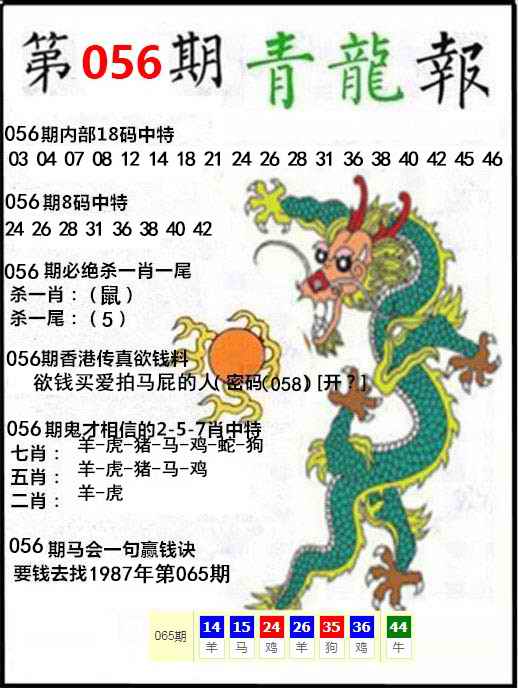 第056期青龍報
056期内部18码中特
03 04 07 08 12 14 18 21 24 26 28 31 36 38 40 42 45 46
056期8码中特
24 26 28 31 36 38 40 42
056期必绝杀一肖一尾
杀一肖：(鼠)
杀一尾：(5)
056期香港传真欲钱料
欲钱买爱拍马屁的人(密码(058)[开?]
056期鬼才相信的2-5-7肖中特
七肖：羊-虎-猪-马-鸡-蛇-狗
五肖：羊-虎-猪-马-鸡
二肖：羊-虎
056期马会一句赢钱诀
要钱去找1987年第065期
065期 14 15 24 26 35 36 44
羊 马 鸡 羊 狗 鸡 牛